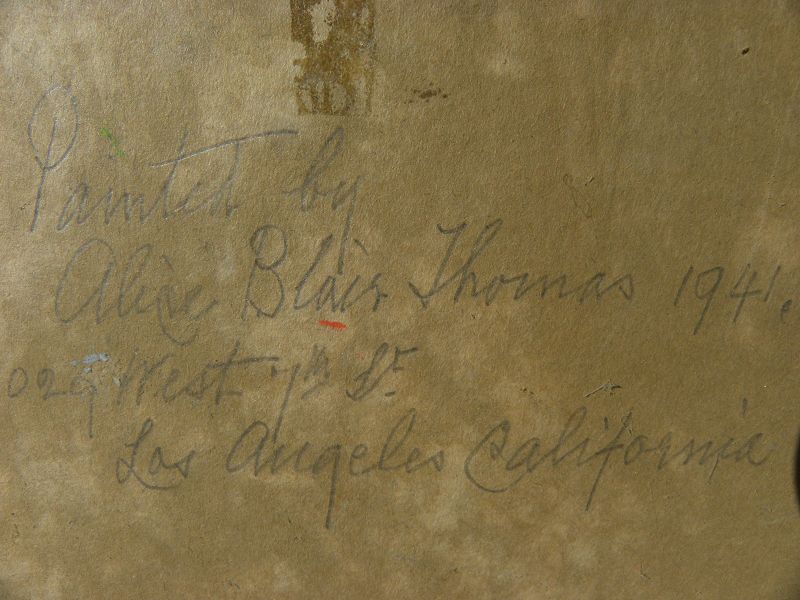 Painted by
Alice Blair Thomas 1941.
029 West 7th St.
Los Angeles California